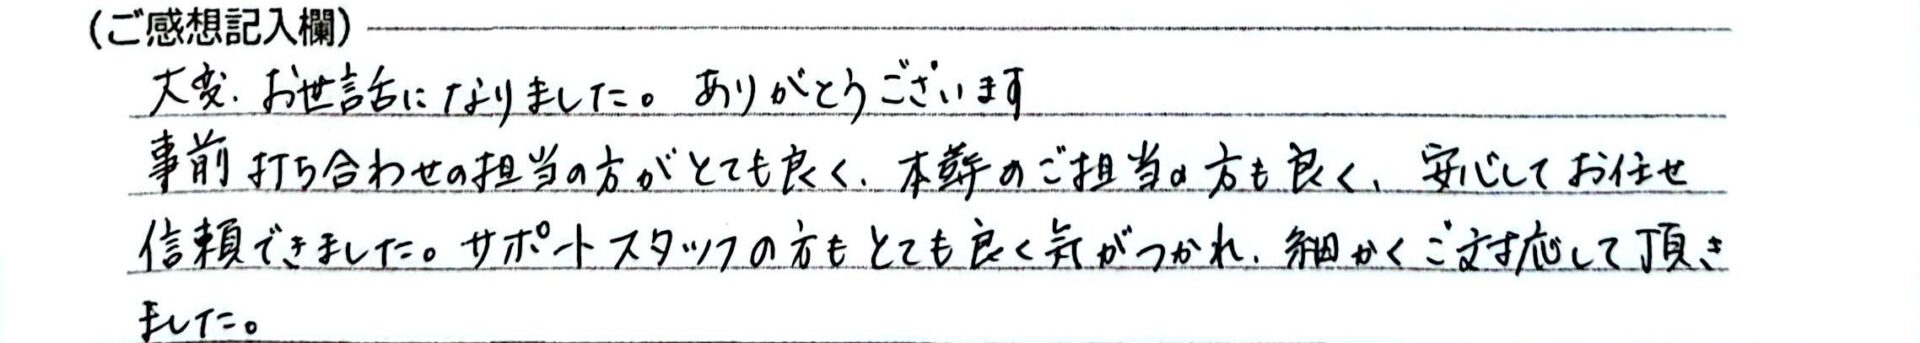 (ご感想記入欄)
大変、お世話になりました。ありがとうございます
事前打ち合わせの担当の方がとても良く、本葬のご担当の方も良く、安心してお任せ
信頼できました。サポートスタッフの方もとても良く気がつかれ、細かくご対応して頂き
ました。